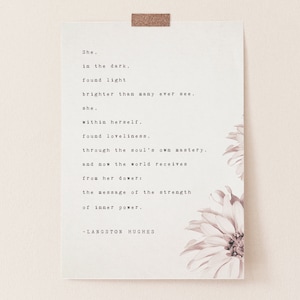 She,
in the dark,
found light
brighter than many ever see.
she,
within herself,
found loveliness,
through the soul's own mastery.
and now the world receives
from her dower:
the message of the strength
of inner power.
-LANGSTON HUGHES